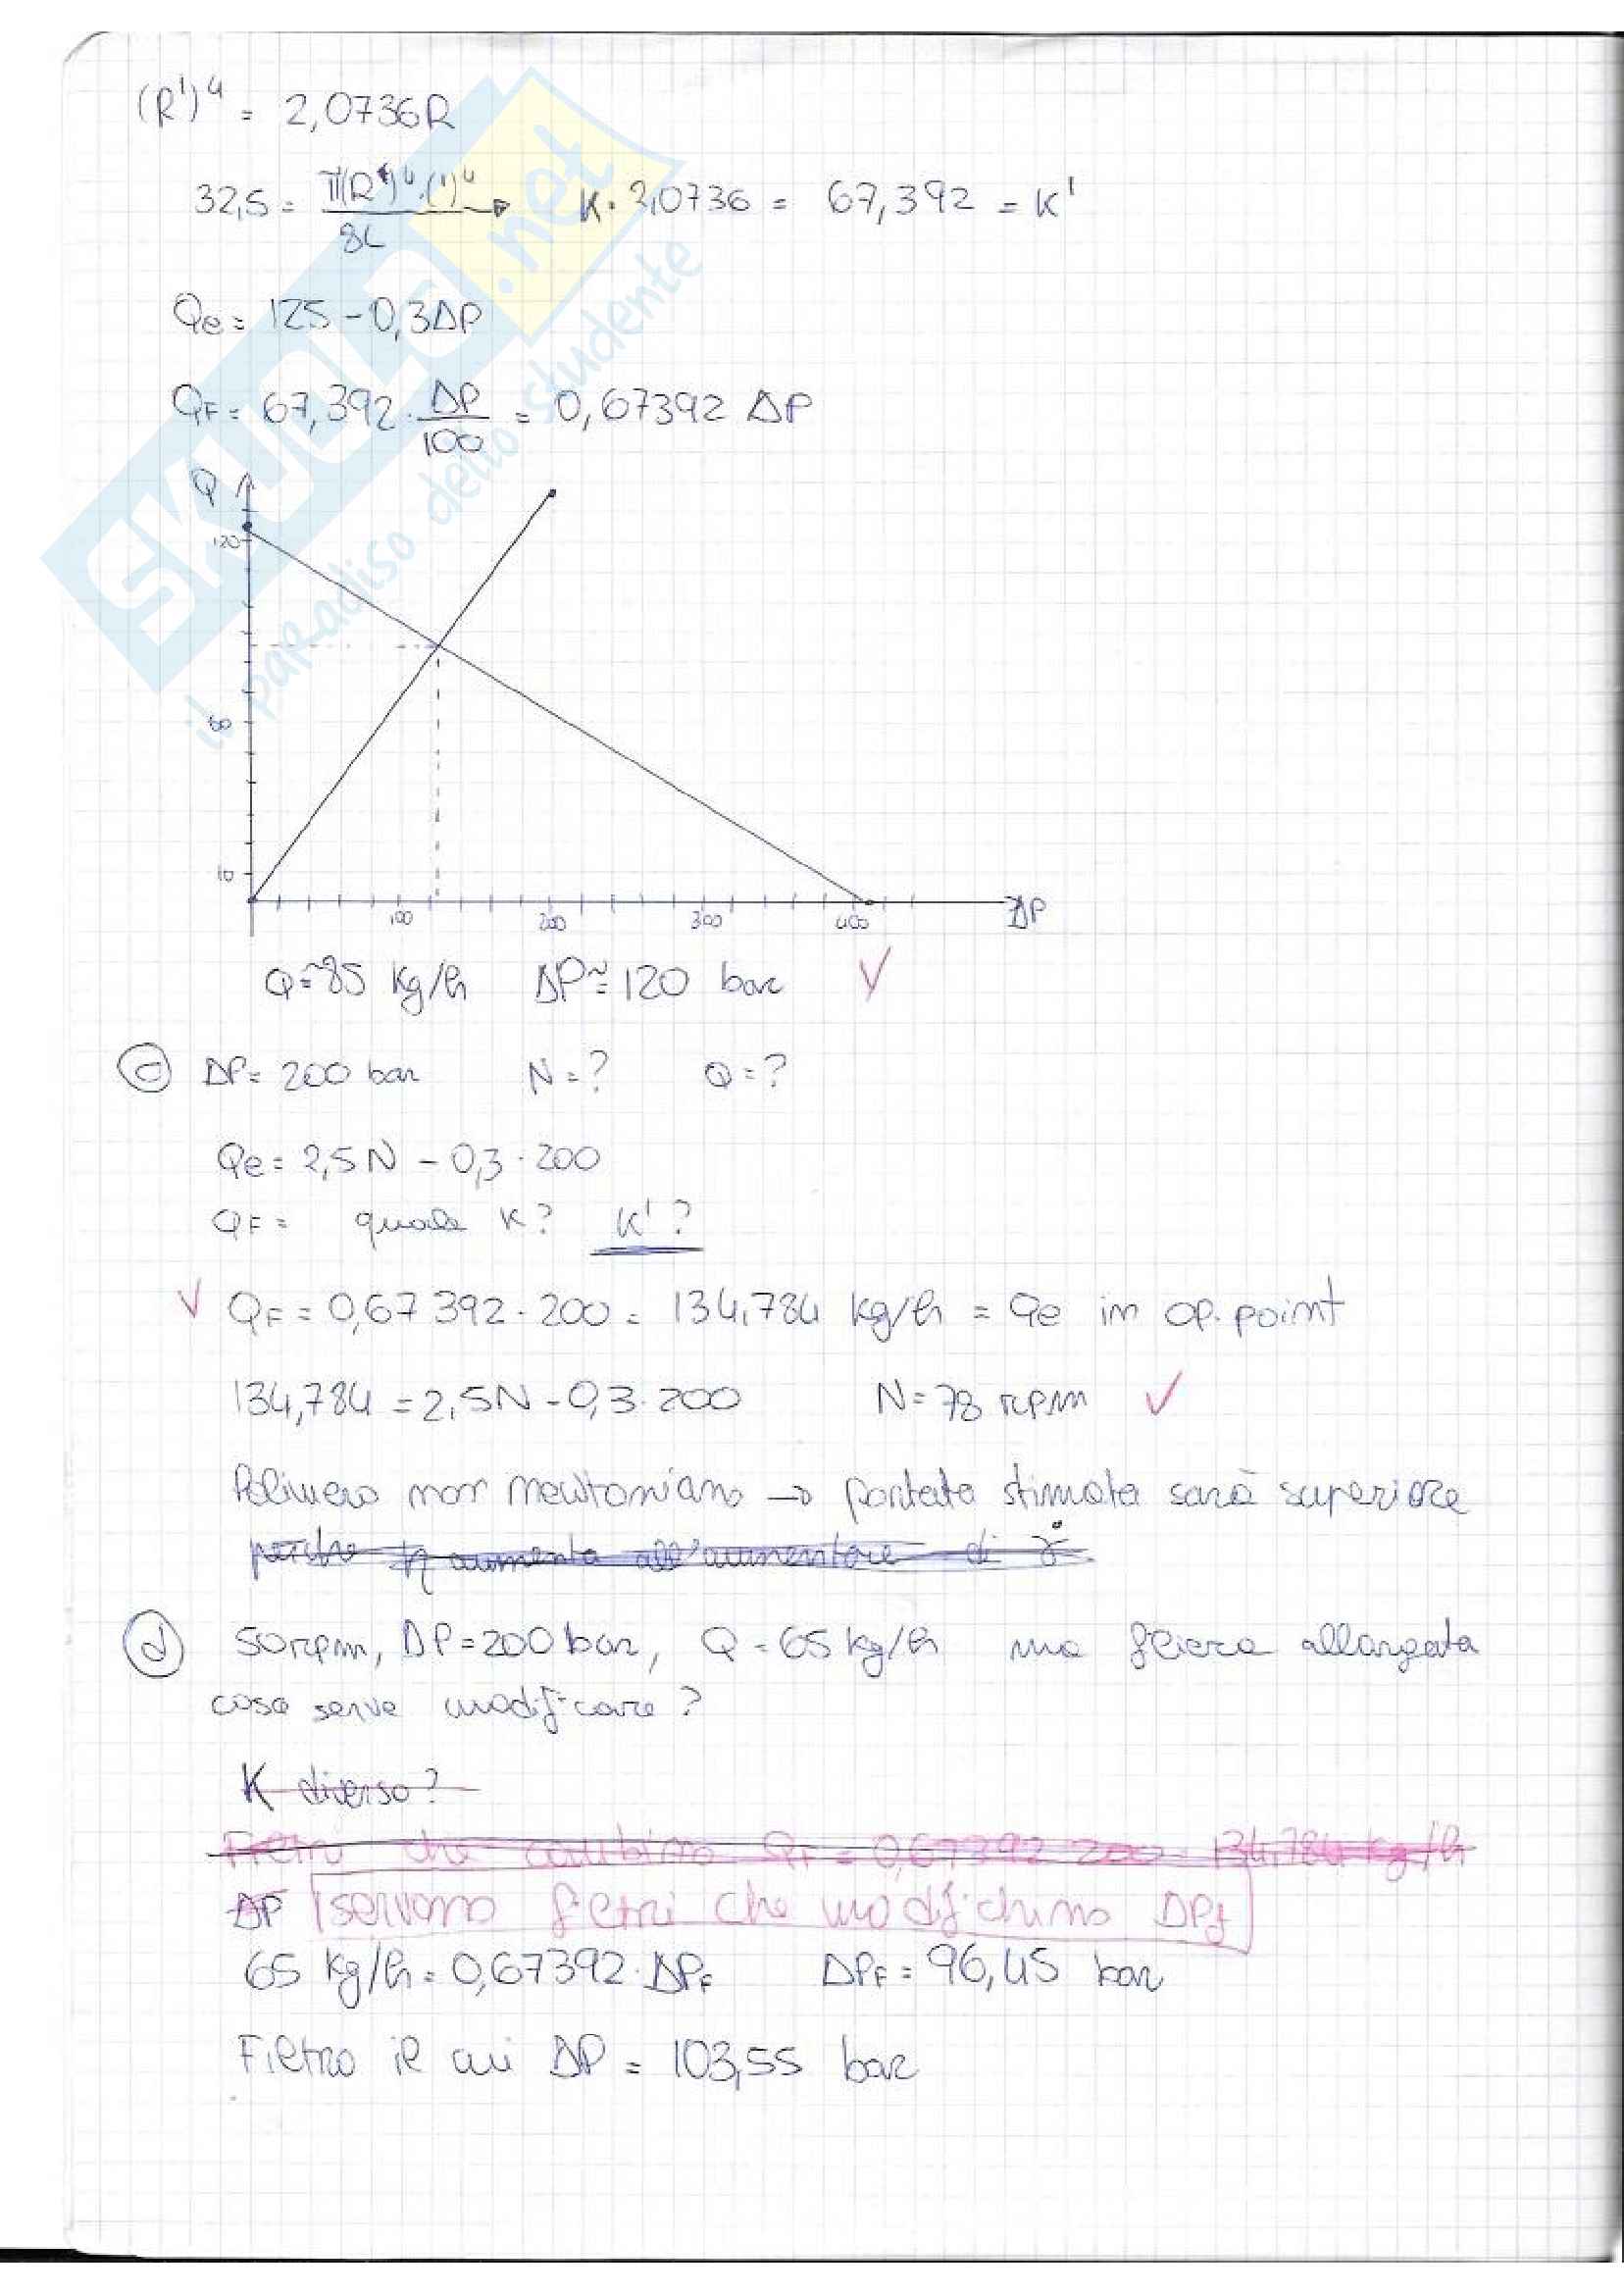 (R')⁴ = 2,0736R
32,5 = π(R)⁴·(')⁴ / 8L → K · 2,0736 = 67,392 = K'
Qe = 125 - 0,3ΔP
QF = 67,392 · ΔP/100 = 0,67392 ΔP
Q
120
60
10
100 200 300 400 ΔP
Q ≃ 85 kg/h ΔP ≃ 120 bar ✓
c ΔP = 200 bar N = ? Q = ?
Qe = 2,5N - 0,3 · 200
QF = quale K? K'?
✓ QF = 0,67392 · 200 = 134,784 kg/h = Qe in op. point
134,784 = 2,5N - 0,3 · 200 N = 78 rpm ✓
Polimero non newtoniano → portata stimata sarà superiore
perché η aumenta all'aumentare di γ̇.
d 50rpm, ΔP = 200 bar, Q = 65 kg/h ma filiera allargata
cosa serve modificare?
K diverso?
Filtri che cambino QF = 0,67392 · 200 = 134,784 kg/h
ΔP servono filtri che modifichino ΔPf
65 kg/h = 0,67392 · ΔPF ΔPF = 96,45 bar
Filtro il cui ΔP = 103,55 bar
SKUOLA.net
il paradiso dello studente